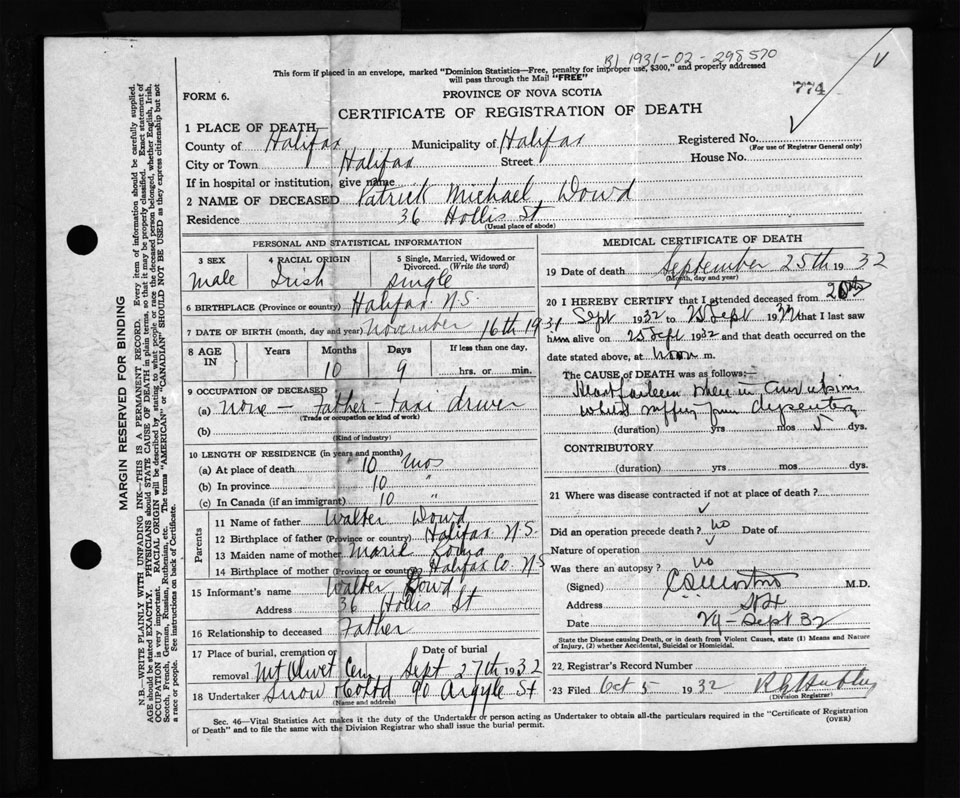 B) 1931-02-298570
This form if placed in an envelope, marked "Dominion Statistics—Free, penalty for improper use, $300," and properly addressed
will pass through the Mail "FREE"
774
FORM 6.
PROVINCE OF NOVA SCOTIA
CERTIFICATE OF REGISTRATION OF DEATH
1 PLACE OF DEATH—
County of Halifax Municipality of Halifax Registered No.
(For use of Registrar General only)
City or Town Halifax Street House No.
If in hospital or institution, give name
2 NAME OF DECEASED Patrick Michael Dowd
Residence 36 Hollis St
(Usual place of abode)
PERSONAL AND STATISTICAL INFORMATION
3 SEX 4 RACIAL ORIGIN 5 Single, Married, Widowed or Divorced. (Write the word)
Male Irish Single
6 BIRTHPLACE (Province or country) Halifax N.S.
7 DATE OF BIRTH (month, day and year) November 16th 1931
8 AGE IN Years Months Days If less than one day,
10 9 hrs. or min.
9 OCCUPATION OF DECEASED
(a) None — Father - taxi driver
(Trade or occupation or kind of work)
(b)
(Kind of industry)
10 LENGTH OF RESIDENCE (in years and months)
(a) At place of death 10 mos
(b) In province 10 "
(c) In Canada (if an immigrant) 10 "
Parents
11 Name of father Walter Dowd
12 Birthplace of father (Province or country) Halifax N.S.
13 Maiden name of mother Marie
14 Birthplace of mother (Province or country) Halifax Co. N.S
15 Informant's name Walter Dowd
Address 36 Hollis St
16 Relationship to deceased Father
17 Place of burial, cremation or removal Date of burial
Mt Olivet Cem Sept 27th 1932
18 Undertaker Snow & Co Ltd 90 Argyle St
(Name and address)
MEDICAL CERTIFICATE OF DEATH
19 Date of death September 25th 1932
(Month, day and year)
20 I HEREBY CERTIFY that I attended deceased from 20th
Sept 1932 to 25 Sept 1932 that I last saw
him alive on 25 Sept 1932 and that death occurred on the
date stated above, at noon m.
The CAUSE OF DEATH was as follows:—
Heart failure in
whilst suffering from dysentery
(duration) yrs mos 5 dys.
CONTRIBUTORY
(duration) yrs mos dys.
21 Where was disease contracted if not at place of death?
Did an operation precede death? no Date of
Nature of operation
Was there an autopsy? no
(Signed) M.D.
Address
Date 29 - Sept 32
State the Disease causing Death, or in death from Violent Causes, state (1) Means and Nature
of Injury, (2) whether Accidental, Suicidal or Homicidal.
22. Registrar's Record Number
23 Filed Oct 5 1932
(Division Registrar)
Sec. 46—Vital Statistics Act makes it the duty of the Undertaker or person acting as Undertaker to obtain all the particulars required in the "Certificate of Registration
of Death" and to file the same with the Division Registrar who shall issue the burial permit.
(OVER)
MARGIN RESERVED FOR BINDING
N.B.—WRITE PLAINLY WITH UNFADING INK—THIS IS A PERMANENT RECORD. Every item of information should be carefully supplied.
AGE should be stated EXACTLY. PHYSICIANS should STATE CAUSE OF DEATH in plain terms, so that it may be properly classified. Exact statement of
OCCUPATION is very important. RACIAL ORIGIN will be described by stating to what people or race the deceased person belonged, whether English, Irish,
Scotch, French, German, Russian, Ruthenian, etc. The terms "AMERICAN" or "CANADIAN" SHOULD NOT BE USED as they express citizenship but not
a race or people. See instructions on back of Certificate.